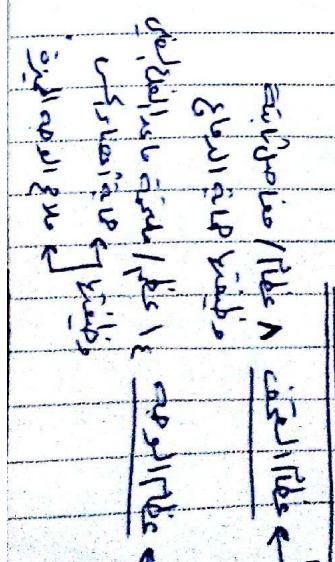 ← عظام القحف ٨ عظام / مفاصل ثابتة
وظيفتها حماية الدماغ
← عظام الوجه ١٤ عظم / ملتحمة ماعدا الفك السفلي
وظيفتها ← حماية أعضاء الحس
← ملامح الوجه المميزة